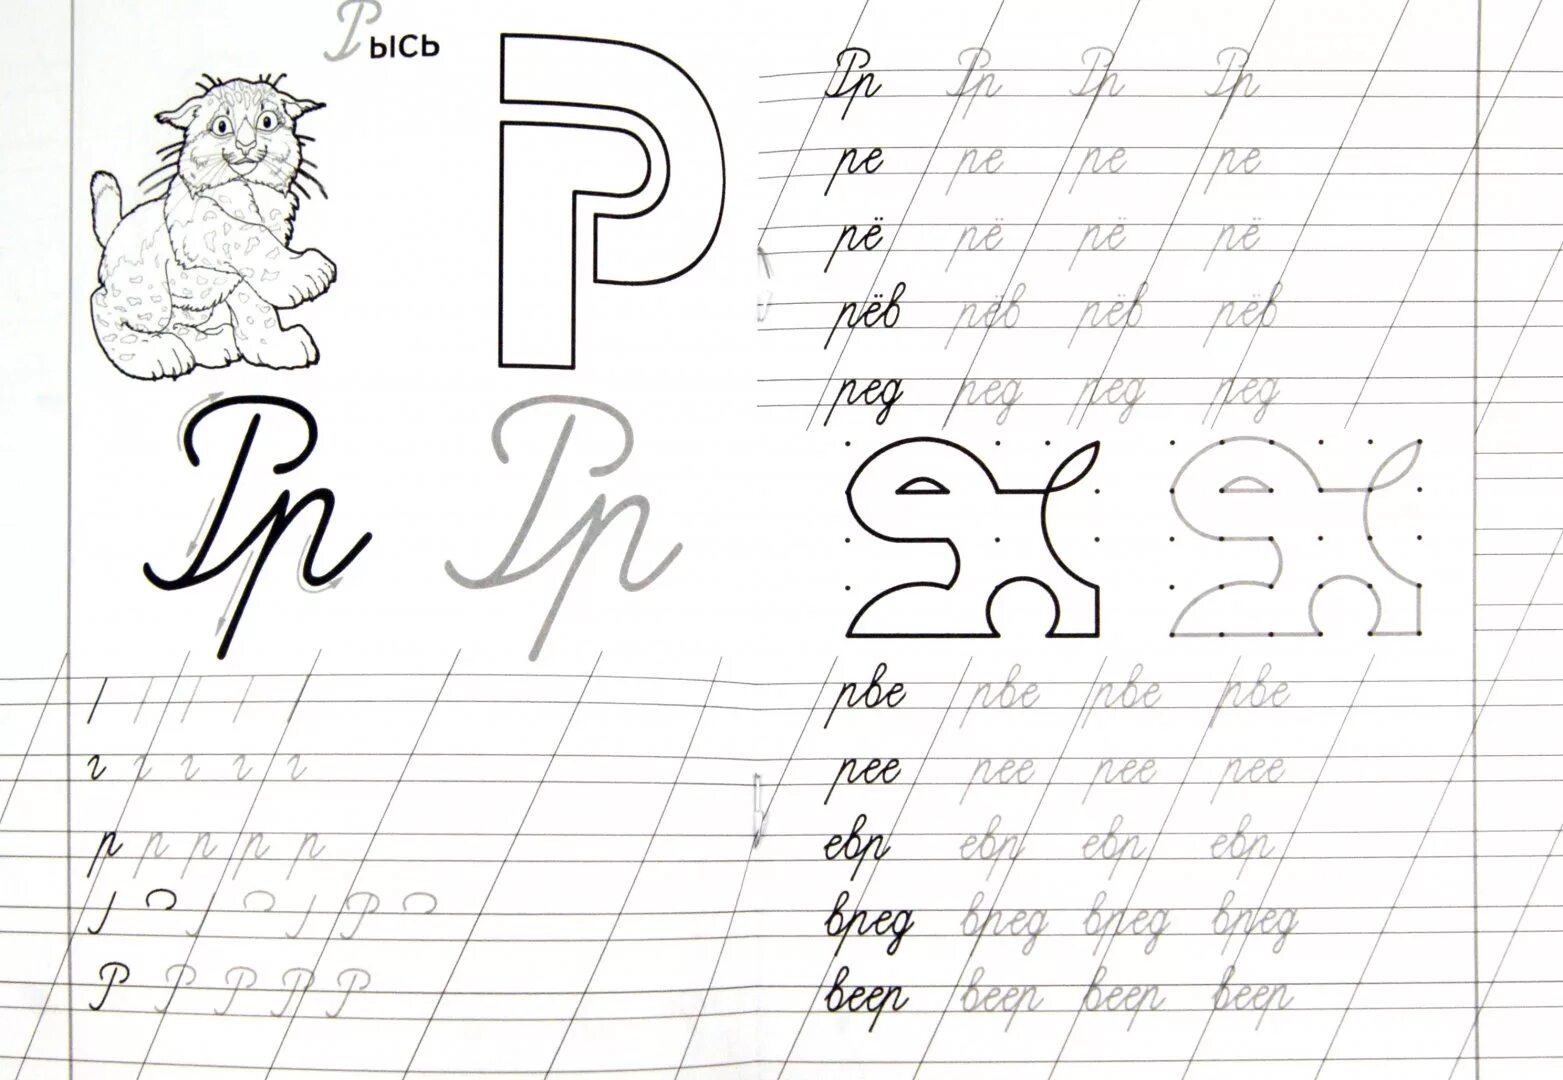 Рысь
Р
Рр Рр
г г г г г
р р р р р
Р
Р Р Р Р Р
Рр Рр Рр Рр
ре ре ре ре
рё рё рё рё
рёв рёв рёв рёв
ред ред ред ред
рве рве рве рве
рее рее рее рее
евр евр евр евр
вред вред вред вред
веер веер веер веер